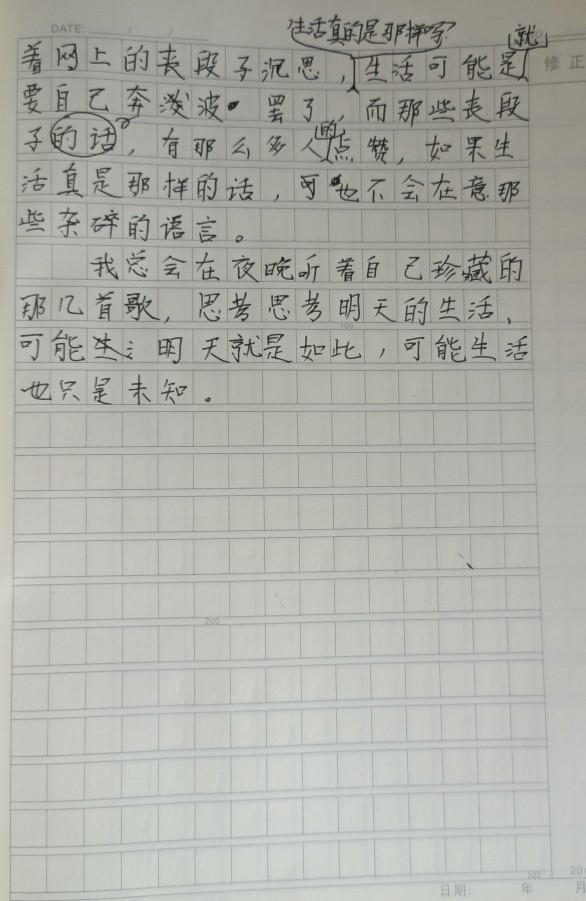 DATE: / /
生活真的是那样吗?
就
着网上的丧段子沉思,生活可能是
修正
要自己奔波 罢了,而那些丧段
的
子的话,有那么多人点赞,如果生
活真是那样的话,也不会在意那
些杂碎的语言。
我总会在夜晚听着自己珍藏的
那几首歌,思考思考明天的生活、
100
可能生 明天就是如此,可能生活
也只是未知。
200
300
20
日期: 年 月